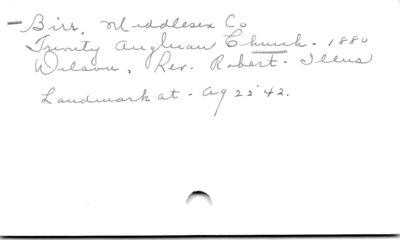 - Birr, Middlesex Co
Trinity Anglican Church - 1880
Wilson, Rev. Robert - Illus
Landmark at - Ag 22' 42.